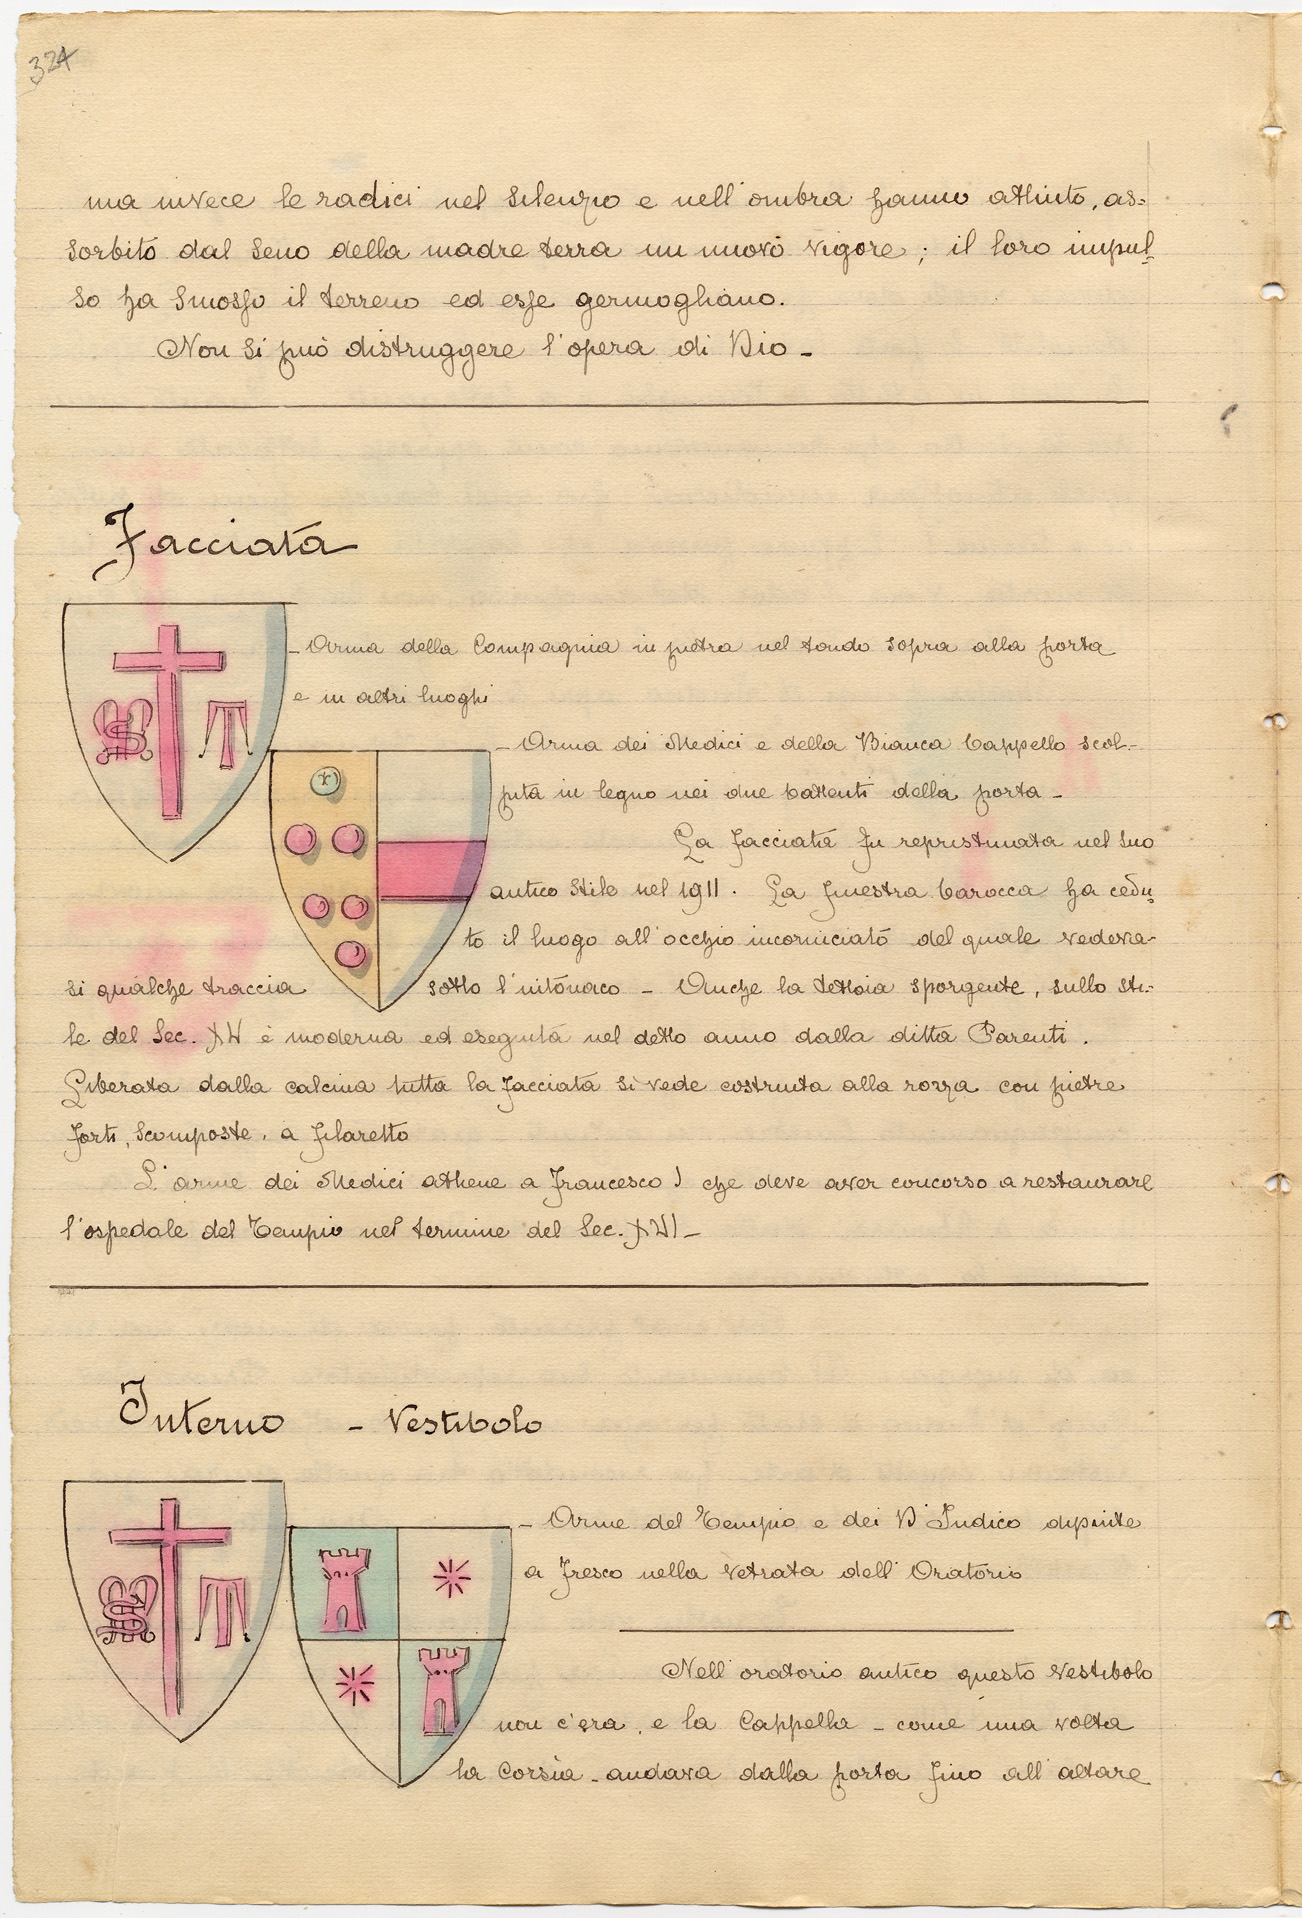 324
ma invece le radici nel silenzio e nell'ombra hanno attinto, as-
sorbito dal seno della madre terra un nuovo vigore; il loro impul-
so ha smosso il terreno ed esse germogliano.
Non si può distruggere l'opera di Dio -
Facciata
- Arma della Compagnia in pietra nel tondo sopra alla porta
e in altri luoghi
- Arma dei Medici e della Bianca Cappello scol-
pita in legno nei due battenti della porta -
La facciata fu repristinata nel suo
antico stile nel 1911. La finestra barocca ha cedu-
to il luogo all'occhio incorniciato del quale vedeva-
si qualche traccia sotto l'intonaco - Anche la tettoia sporgente, sullo sti-
le del Sec. XV è moderna ed eseguita nel detto anno dalla ditta Parenti.
Liberata dalla calcina tutta la facciata si vede costruita alla rozza con pietre
forti, scomposte, a filaretto
L'arme dei Medici attiene a Francesco I che deve aver concorso a restaurare
l'ospedale del Tempio nel termine del Sec. XVI -
Interno - Vestibolo
- Arme del Tempio e dei D'Indico dipinte
a fresco nella vetrata dell'Oratorio
Nell'oratorio antico questo vestibolo
non c'era, e la Cappella - come una volta
la Corsia - andava dalla porta fino all'altare